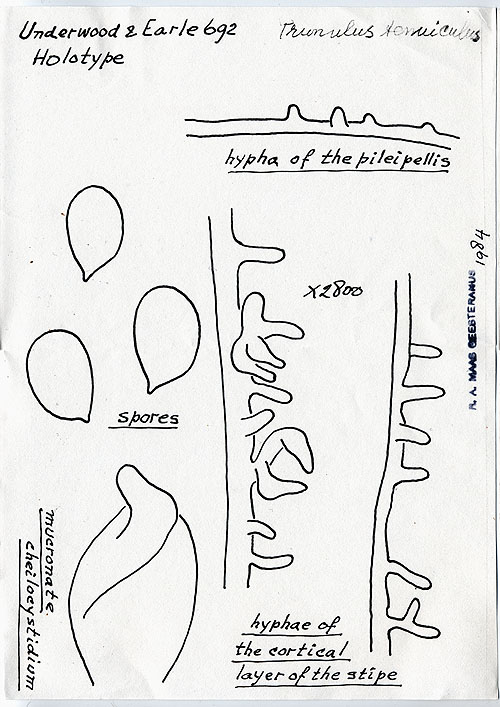 Underwood & Earle 692
Holotype
Prunulus tenuiculus
hypha of the pileipellis
x2800
spores
mucronate
cheilocystidium
hyphae of
the cortical
layer of the stipe
R. A. MAAS GEESTERANUS 1984